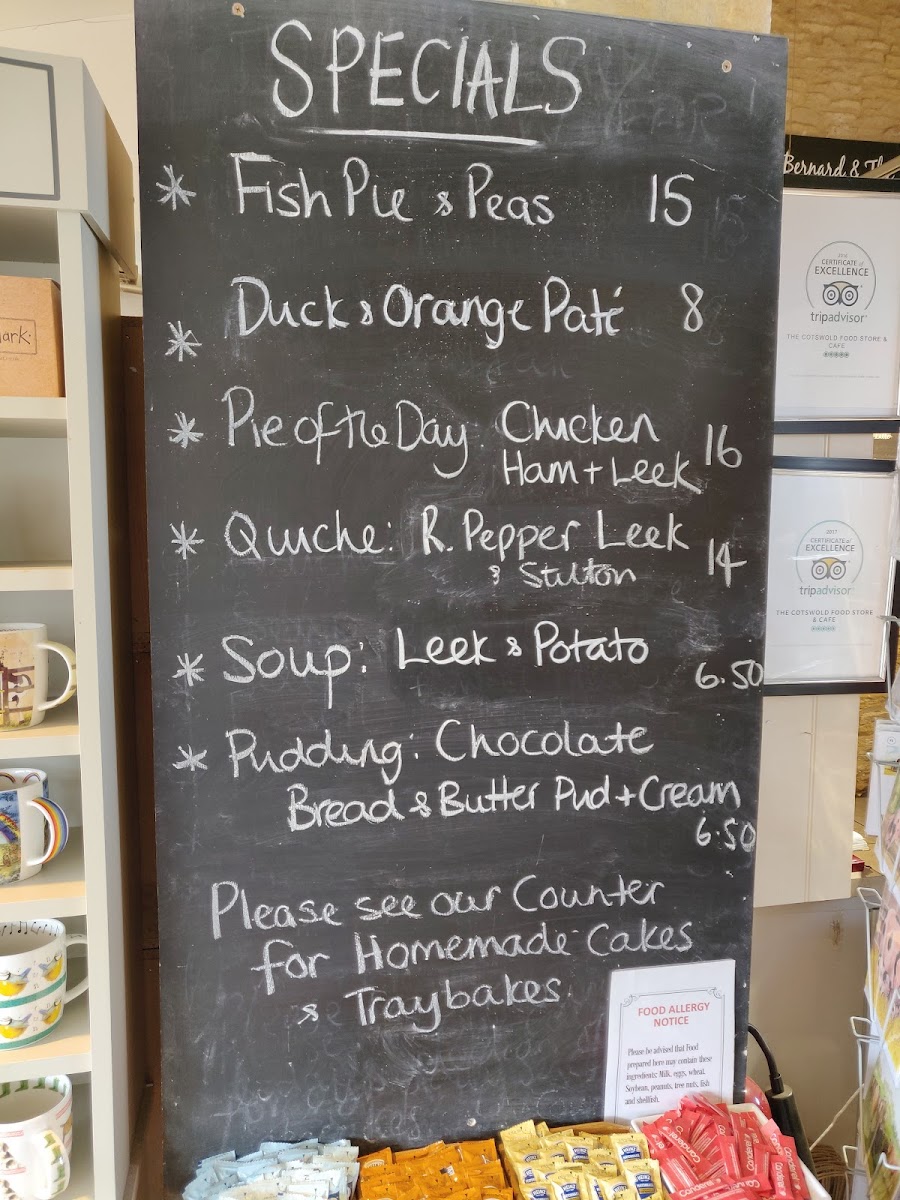 SPECIALS
* Fish Pie & Peas 15
* Duck & Orange Paté 8
* Pie of the Day: Chicken
Ham + Leek 16
* Quiche: R. Pepper Leek
& Stilton 14
* Soup: Leek & Potato
6.50
* Pudding: Chocolate
Bread & Butter Pud + Cream
6.50
Please see our Counter
for Homemade Cakes
& Traybakes
FOOD ALLERGY
NOTICE
Please be advised that Food
prepared here may contain these
ingredients: Milk, eggs, wheat,
Soybean, peanuts, tree nuts, fish
and shellfish.
Bernard &
CERTIFICATE of
EXCELLENCE
tripadvisor
THE COTSWOLD FOOD STORE &
CAFE
2017
CERTIFICATE of
EXCELLENCE
tripadvisor
THE COTSWOLD FOOD STORE
& CAFE
ark:
HEINZ
Canderel